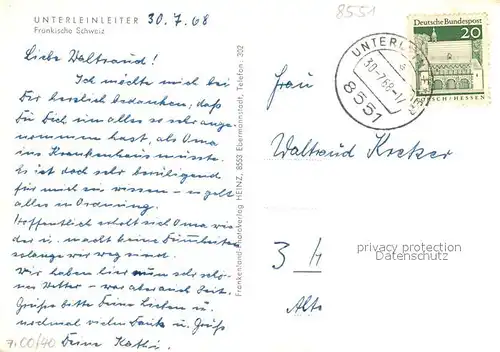 UNTERLEINLEITER 30.7.68
Fränkische Schweiz
Liebe Waltraud!
Ich möchte mich bei
Dir herzlich bedanken, daß
Du Dich um alles so sehr ange-
nommen hast, als Oma
ins Krankenhaus müsste.
Es ist doch sehr beruhigend
für mich zu wissen - es geht
alles in Ordnung.
Hoffentlich erholt sich Oma wie-
der u. macht keine Dummheiten
solange wir weg sind.
Wir haben hier nun sehr schö-
nes Wetter - war aber auch Zeit.
Grüße bitte Deine Lieben u.
nochmal vielen Dank u. Grüße
Deine Kathi.
7.00/40
Frankenland-Photoverlag HEINZ, 8553 Ebermannstadt, Telefon: 302
8551
Deutsche Bundespost
20
LORSCH/HESSEN
30.-7.68-17
8551
Frau
Waltraud
privacy protection
Datenschutz